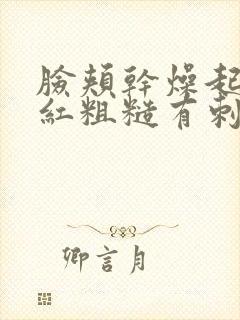 臉頰幹燥起
紅粗糙有刺
卿言月